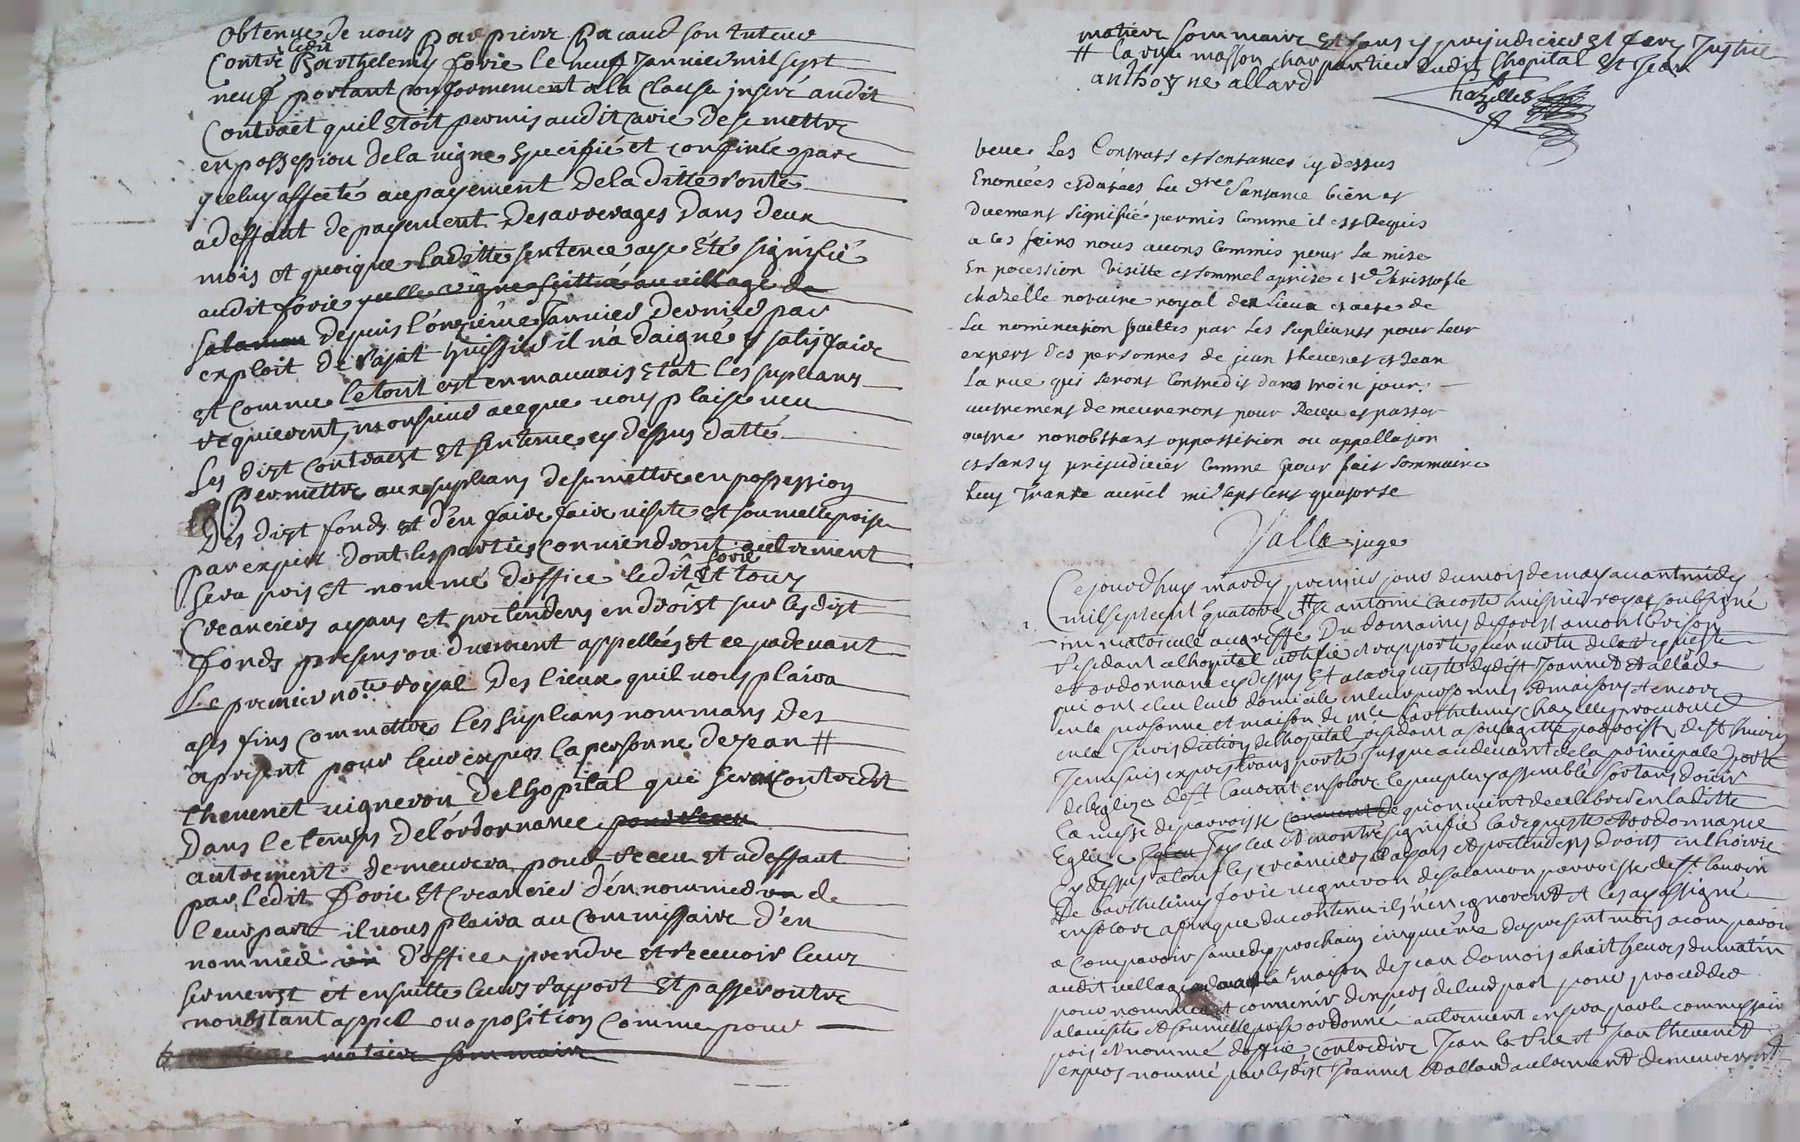 obtenue de nous par pierre pacaud son tuteur
contre ledit Barthelemy forie le neuf Janvier mil sept
neuf portant conformement a la clause inseré audit
Contract quil etoit permis audit de se mettre
en possession de la vigne specifié et confinée par
yceluy affecté au payement de la ditte rente
a deffaut de payement des arrerages dans deux
mois et quoique laditte sentence aye été signifié
audit forie
salamon depuis l'onzieme Janvier dernier par
exploit de huissier il n'a daigné y satisfaire
et comme le tout est en mauvais etat les suplians
requierent, monsieur aceque vous plaise veu
Les dist contract et sentence cy dessus datté
Permettre aux suplians de se mettre en possession
Des dist fonds et d'en faire faire visite et sommelleprise
par expert dont les parties conviendront autrement
sera pris et nommé d'office ledit forie et tous
creanciers ayans et pretendens en droist sur les dist
fonds presens ou duement appellés et ce pardevant
Le premier not.re royal des lieux quil vous plaira
a ses fins commettre les suplians nommans des
apresent pour leur expers la personne de Jean #
thevenet vigneron de lhopital que sera contredit
Dans le temps de l'ordonnance
autrement demeurera pour receu et a deffaut
par ledit forie et creancier d'en nommer de
leur part il vous plaira au commissaire d'en
nommer d'office prendre et recevoir leur
serment et ensuitte leur rapport et passer outre
nonobstant appel ou oposition comme pour
matiere sommaire
matiere sommaire et sans y prejudicier et ferez Justice
# la rue masson charpantier dudit lhopital et Jean
anthoyne allard
Chazelles
veue Les Contrats et sentances cy dessus
Enoncées et datées La d.re Santance bien et
Duement signifié permis comme il est Requis
a ces fains nous avons commis pour La mise
En pocession visitte et sommelaprise Christofle
chazelle notaire royal des Lieux et acte de
La nomination faittes par Les supliants pour leur
expert des personnes de jean thevenet et Jean
La rue qui seront Contredit dans trois jour
autrement demeureront pour Receu et passer
outre nonobstant oppossition ou appellation
et sans y prejudicier comme pour fait sommaire
Ce trante avril mil sept cent quatorse
Valla juge
Ce jourdhuy mardy premier jour du mois de may avant midy
mil sept cent quatorze Je antoine lacoste huissier royal soubsigné
immatriculé au greffe du domaine de forest a montbrison
residant a lhopital certifie et rapporte quen vertu de la requeste
et ordonnance cy dessus et a la requeste dudit Joannet et allard
qui ont eleu leur domicile en leur personnes et maisons et encore
en la personne et maison de m.e Barthelemy Chazelles procureur
en la Jurisdiction de lhopital residant a parroisse de st
Je me suis expres transporté Jusque au devant de la principale porte
de leglize de st laurent en solore le peuple assemblé sortant d'ouir
la messe de parroisse qui on vient de celebrer en laditte
Eglize Jay leu et montré signifié la requeste et ordonnance
cy dessus a tous les creanciers et ayans et pretendens droits en lhoirie
de barthelemy forie vigneron de salamon parroisse de st laurent
en solore afin que du contenu ils n'en ignorent et les ay assigné
a comparoir samedy prochain cinquieme du present mois a comparoir
audit village maison de Jean damois a huit heures du matin
pour nommer et convenir d'expers de leur part pour proceder
a la visite et sommelleprise ordonné autrement en sera par le commissaire
pris et nommé d'office contredire Jean la rue et Jean thevenet
expers nommé par lesdit Joannet et allard autrement demeureront